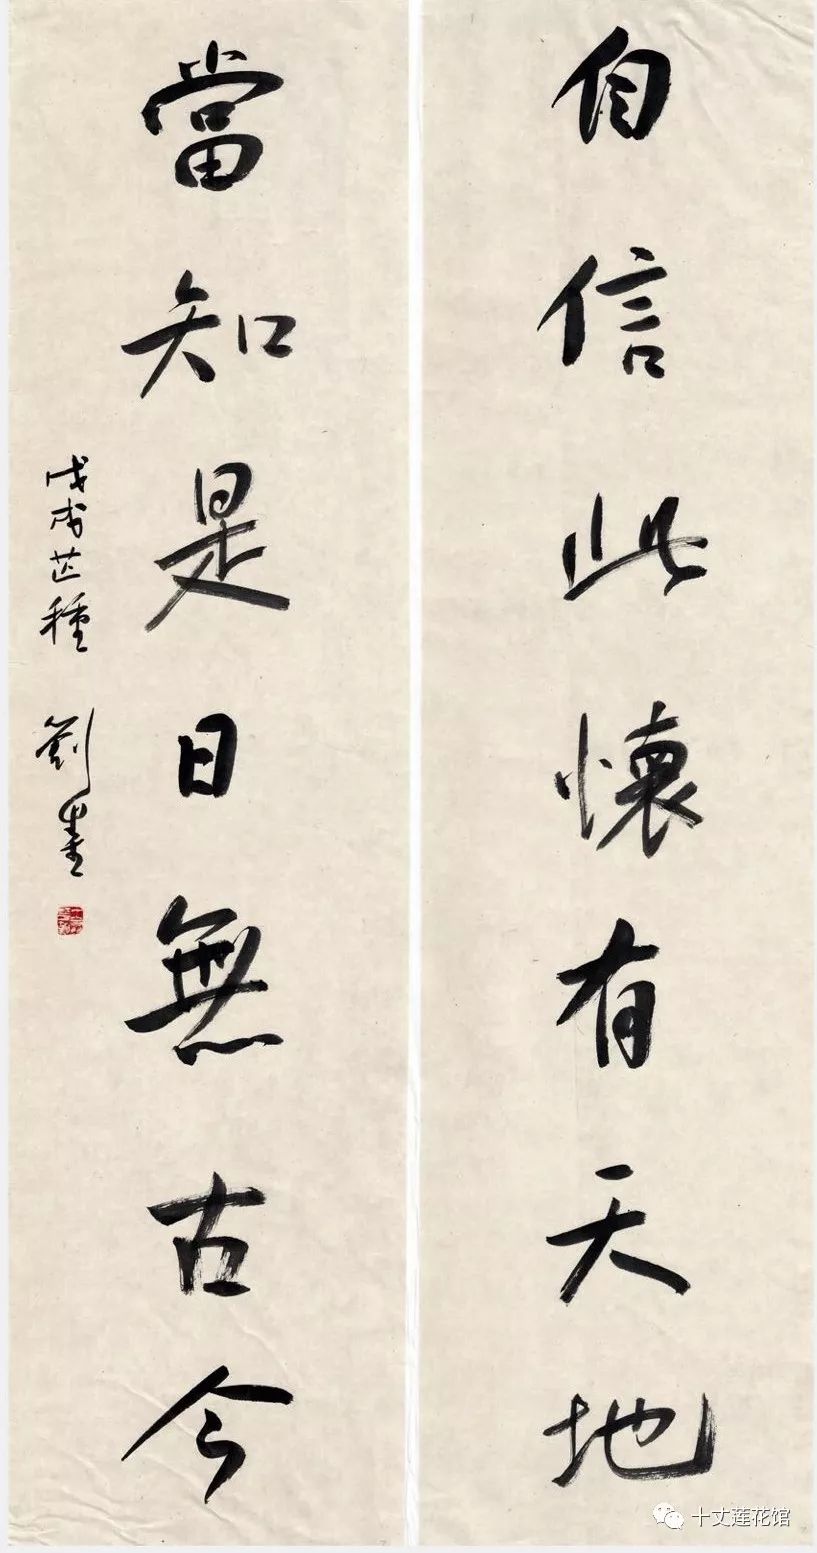 自信此懷有天地
當知是日無古今
戊戌芒種
劉墨
十丈莲花馆